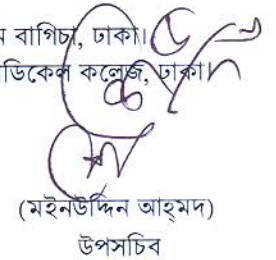 বাগিচা, ঢাকা।
কলেজ, ঢাকা।
(মইনউদ্দিন আহ্‌মদ)
উপসচিব